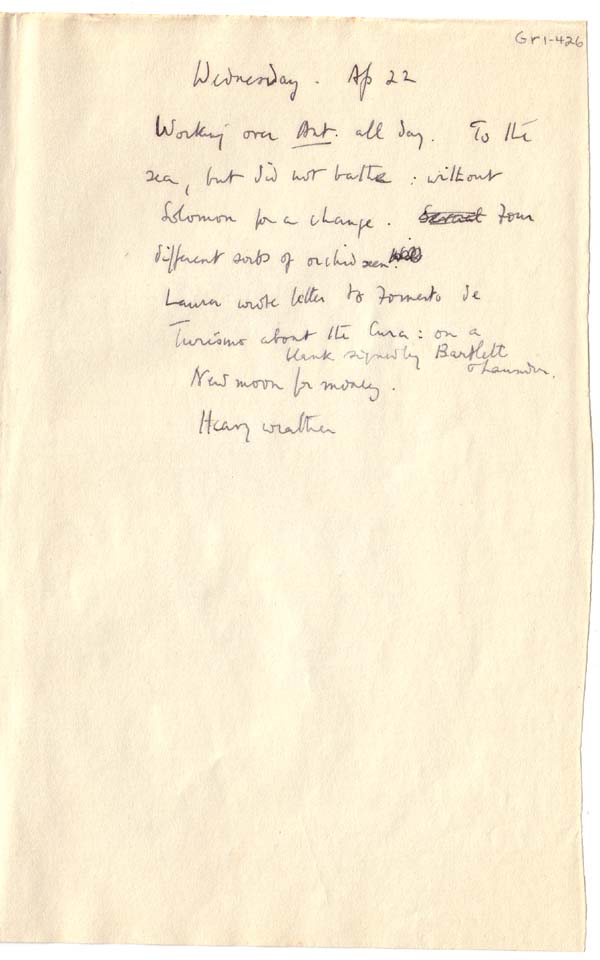 Gr1-426
Wednesday. Ap 22
Working over Ant. all day. To the
sea, but did not bathe: without
Solomon for a change. Several Four
different sorts of orchid seen.
Laura wrote letter to Fomento de
Turismo about the Cura: on a
blank signed by Bartlett
New moon for money.
Heavy weather